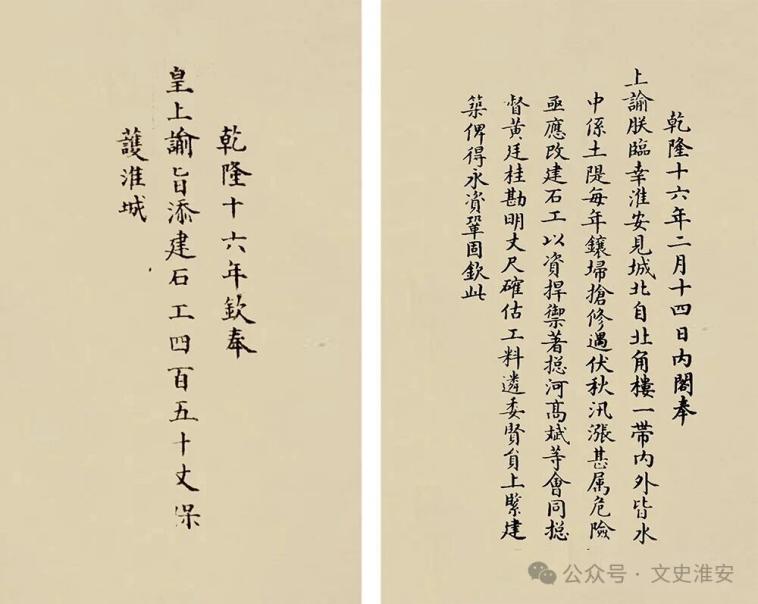 乾隆十六年二月十四日內閣奉
上諭朕臨幸淮安見城北自北角樓一帶內外皆水
中係土隄每年鑲埽搶修遇伏秋汛漲甚屬危險
亟應改建石工以資捍禦著揔河高斌等會同揔
督黃廷桂勘明丈尺確估工料遴委賢貟上緊建
築俾得永資鞏固欽此
乾隆十六年欽奉
皇上諭旨添建石工四百五十丈保
護淮城
公众号·文史淮安